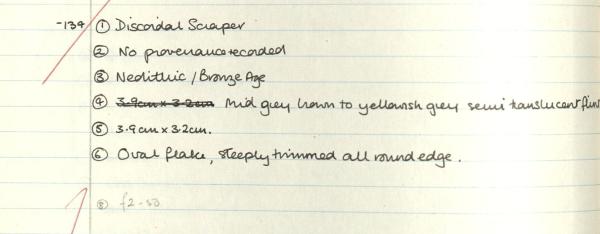 -134 ① Discoidal Scraper
② No provenance recorded
③ Neolithic / Bronze Age
④ 3.9cm x 3.2cm Mid grey brown to yellowish grey semi translucent flint
⑤ 3.9cm x 3.2cm.
⑥ Oval flake, steeply trimmed all round edge.
⑧ £2-50